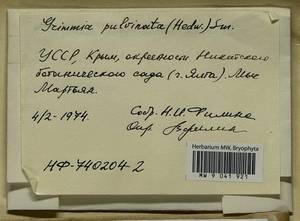 Grimmia pulvinata (Hedw.) Sm.
УССР, Крым, окрестности Никитского
ботанического сада (г. Ялта). Мыс
Мартьян.
4/2-1974. Собр. Н.И. Филина
Опр.
НФ-740204-2
Herbarium MW, Bryophyta
MW 9 041 921